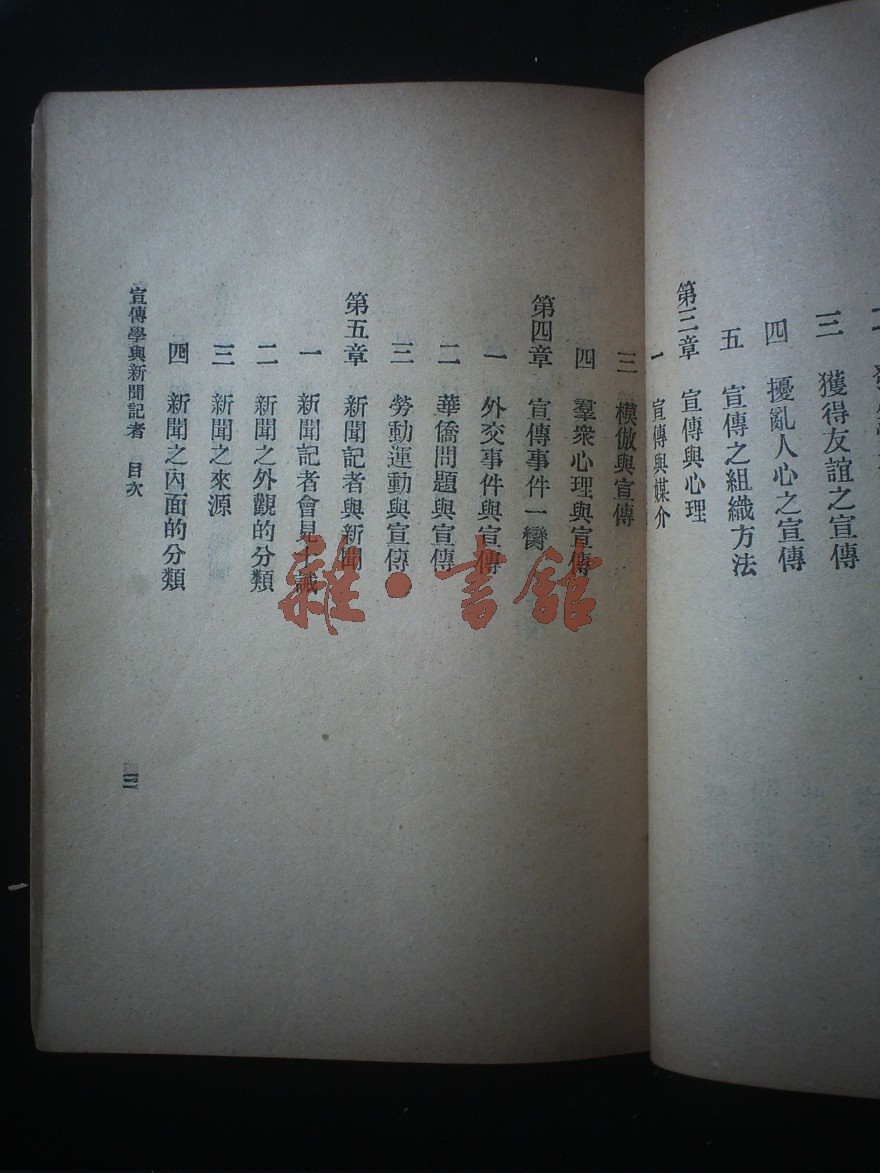 三 獲得友誼之宣傳
四 擾亂人心之宣傳
五 宣傳之組織方法
第三章 宣傳與心理
一 宣傳與媒介
三 模倣與宣傳
四 羣衆心理與宣傳
第四章 宣傳事件一臠
一 外交事件與宣傳
二 華僑問題與宣傳
三 勞動運動與宣傳
第五章 新聞記者與新聞
一 新聞記者會見十誡
二 新聞之外觀的分類
三 新聞之來源
四 新聞之內面的分類
宣傳學與新聞記者 目次
雜·書館